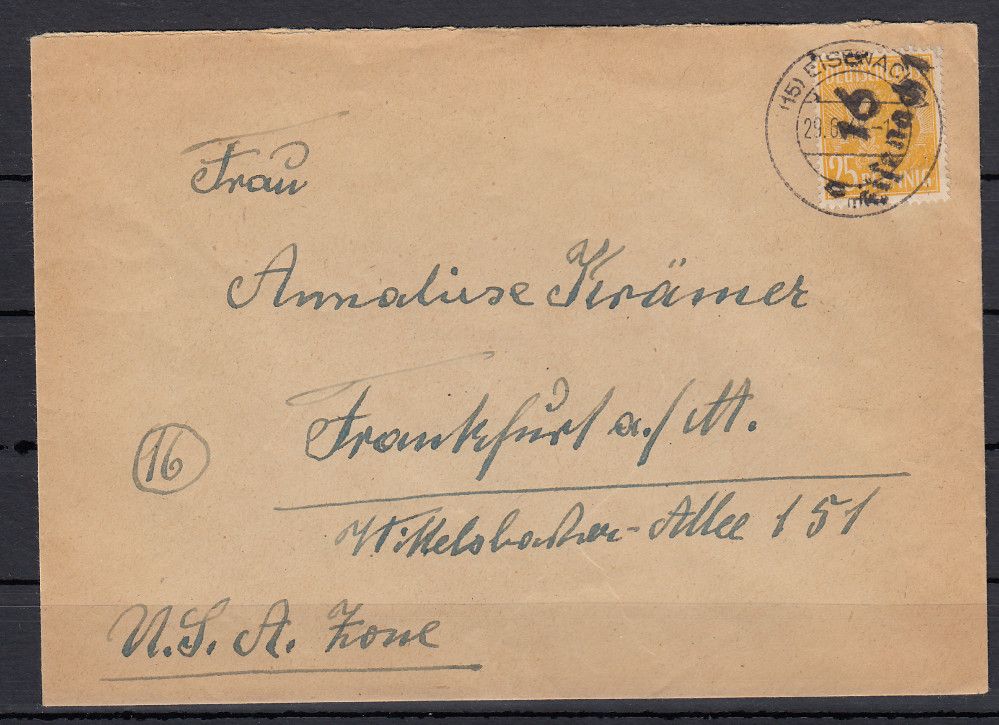 (15) EISENACH
29.6
DEUTSCHE
16
Eisenach 1
25 PFENNIG
Frau
Annaliese Krämer
16
Frankfurt a./M.
Wittelsbacher-Allee 151
U.S.A. Zone